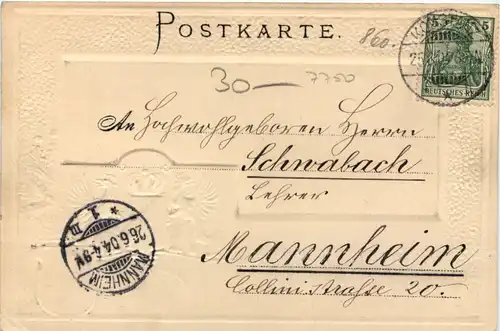 POSTKARTE.
860.
5
DEUTSCHES REICH
30—
7750
An Hochwohlgeboren Herrn
Schwabach
Lehrer
Mannheim
Collini strasse 20.
MANNHEIM
26.6.04.4-9N
* 1 m